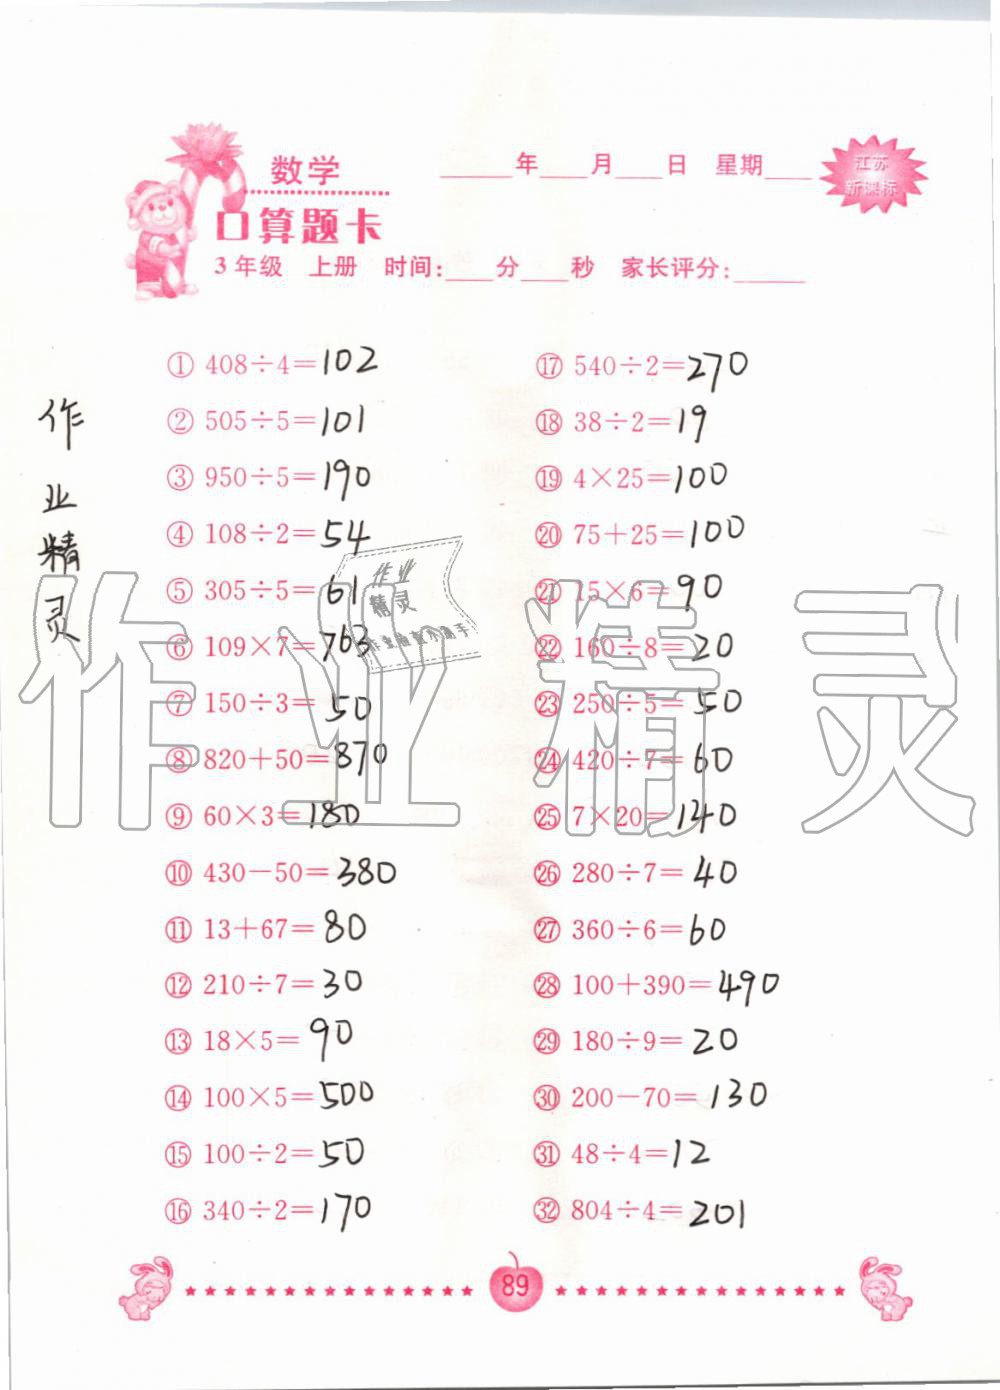 数学
____年____月____日 星期____
江苏
新课标
口算题卡
3年级 上册 时间:____分____秒 家长评分:____
① 408÷4=102
② 505÷5=101
③ 950÷5=190
④ 108÷2=54
⑤ 305÷5=61
⑥ 109×7=763
⑦ 150÷3=50
⑧ 820+50=870
⑨ 60×3=180
⑩ 430-50=380
⑪ 13+67=80
⑫ 210÷7=30
⑬ 18×5=90
⑭ 100×5=500
⑮ 100÷2=50
⑯ 340÷2=170
⑰ 540÷2=270
⑱ 38÷2=19
⑲ 4×25=100
⑳ 75+25=100
㉑ 15×6=90
㉒ 160÷8=20
㉓ 250÷5=50
㉔ 420÷7=60
㉕ 7×20=140
㉖ 280÷7=40
㉗ 360÷6=60
㉘ 100+390=490
㉙ 180÷9=20
㉚ 200-70=130
㉛ 48÷4=12
㉜ 804÷4=201
作业精灵
作业
精灵
作业检查小助手
作业精灵
89